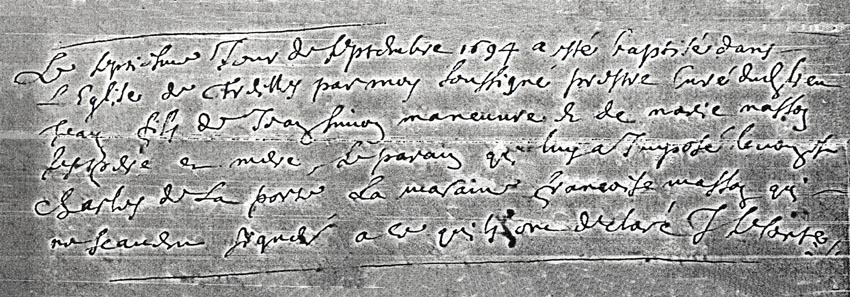 Le septiesme Jour de septembre 1694 a esté baptisé dans
L'Eglise de par moy soussigné prestre Curé dud lieu
Jean fils de Jean Simon maneuvre & de marie masson
ses pere et mere, Le parain qui luy a Imposé le nom est
Charles de La porte La maraine françoise masson qui
ne scauent signer a ce quils ont declaré